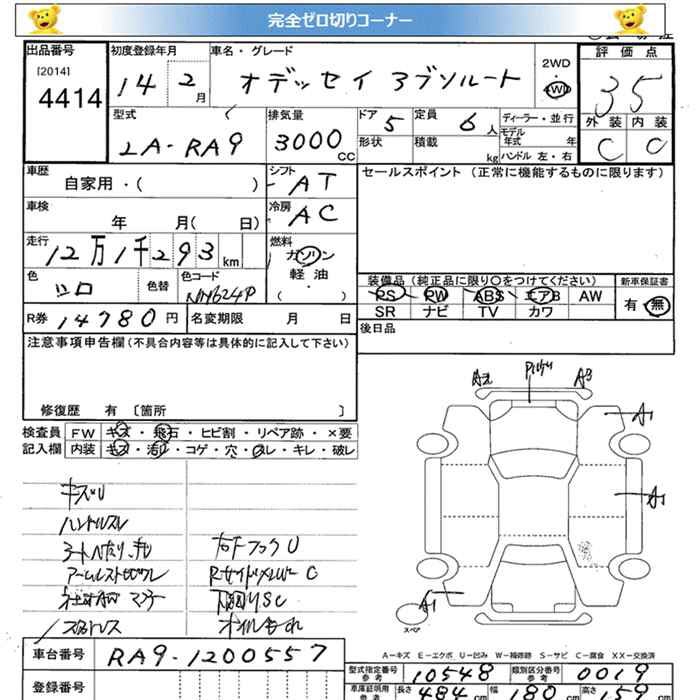 完全ゼロ切りコーナー
出品番号
[2014]
4414
初度登録年月
14 2月
車名・グレード
オデッセイ アブソルート
2WD
・
4WD
評価点
3.5
外装 内装
C C
型式
LA-RA9
排気量
3000 CC
ドア 5
形状
定員 6人
積載 kg
ディーラー・並行
モデル年式 年
ハンドル 左・右
車歴
自家用・( )
シフト
AT
セールスポイント (正常に機能するものに限ります)
車検
年 月( 日)
冷房
AC
走行
12万1千293km
燃料
ガソリン
軽油
( )
色
シロ
色替
色コード
NH624P
装備品 (純正品に限り○をつけてください)
PS PW ABS エアB AW
SR ナビ TV カワ
新車保証書
有・無
R券 14780円
名変期限 月 日
後日品
注意事項申告欄(不具合内容等は具体的に記入して下さい)
修復歴 有 〔箇所 〕
検査員 FW キズ・飛石・ヒビ割・リペア跡・×要
記入欄 内装 キズ・汚レ・コゲ・穴・スレ・キレ・破レ
キズU
ハンドルスレ
A1
A1
A1
スペア
A-キズ E-エクボ U-凹み W-補修跡 S-サビ C-腐食 XX-交換済
車台番号 RA9-1200557
登録番号
型式指定番号 参考 10548
類別区分番号 参考 0019
車庫証明用 参考
長さ 484 cm
幅 180 cm
高さ 159 cm